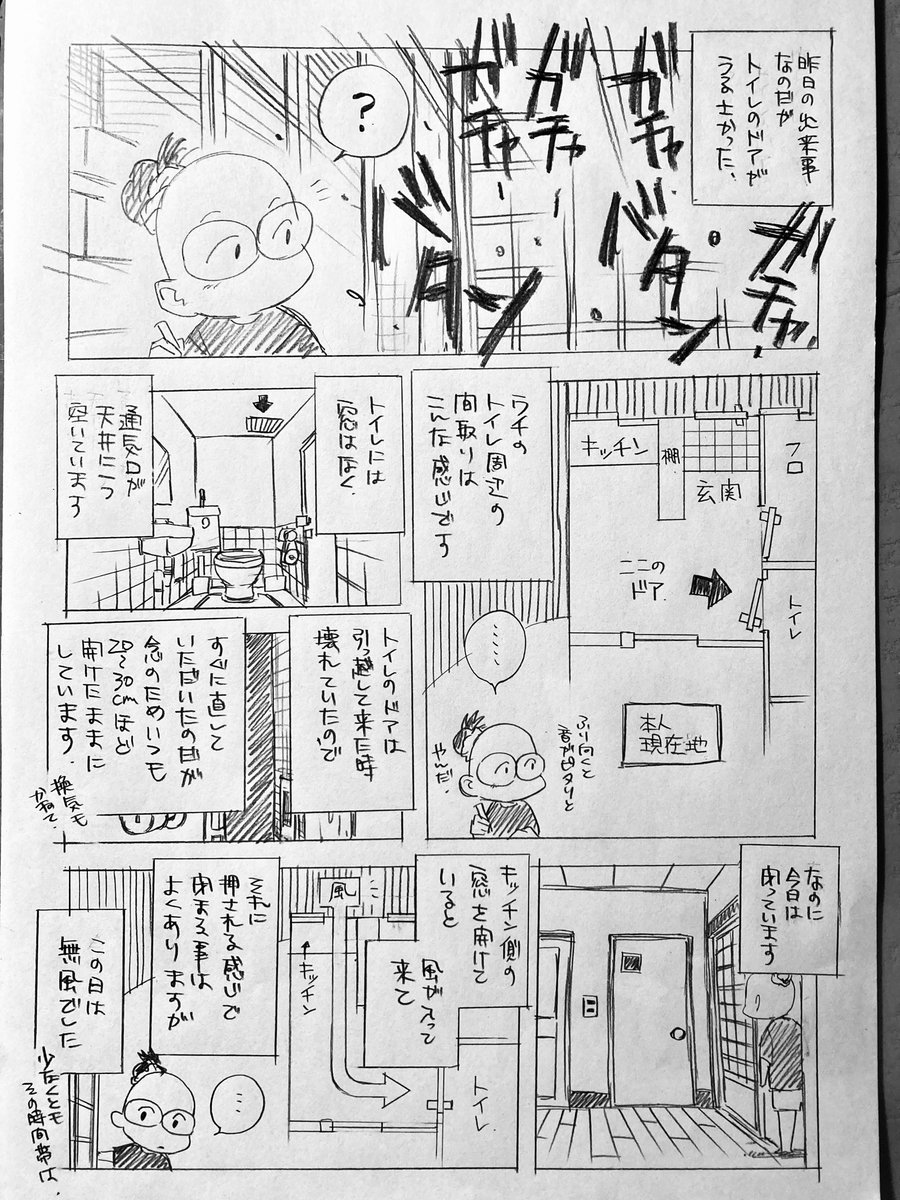 昨日の出来事
なのだが
トイレのドアが
うるさかった、
ガチャ
バタン
ガチャ
バタン
ガチャ
ガチャ
?
ウチの
トイレ周辺の
間取りは
こんな感じです
キッチン
棚
玄関
フロ
ここの
ドア
トイレ
本人
現在地
ふり向くと
音がピタリと
やんだ。
……
トイレには
窓はなく
通気口が
天井に一つ
空いています
トイレのドアは
引っ越して来た時
壊れていたので
すぐに直して
いただいたのだが
念のためいつも
20~30cmほど
開けたままに
しています。
換気も
かねて。
なのに
今日は
閉っています
キッチン側の
窓を開けて
いると
風が入って
来て
風
キッチン
トイレ
それに
押される感じで
閉まる事は
よくありますが
この日は
無風でした
少なくとも
その時間帯は。
…